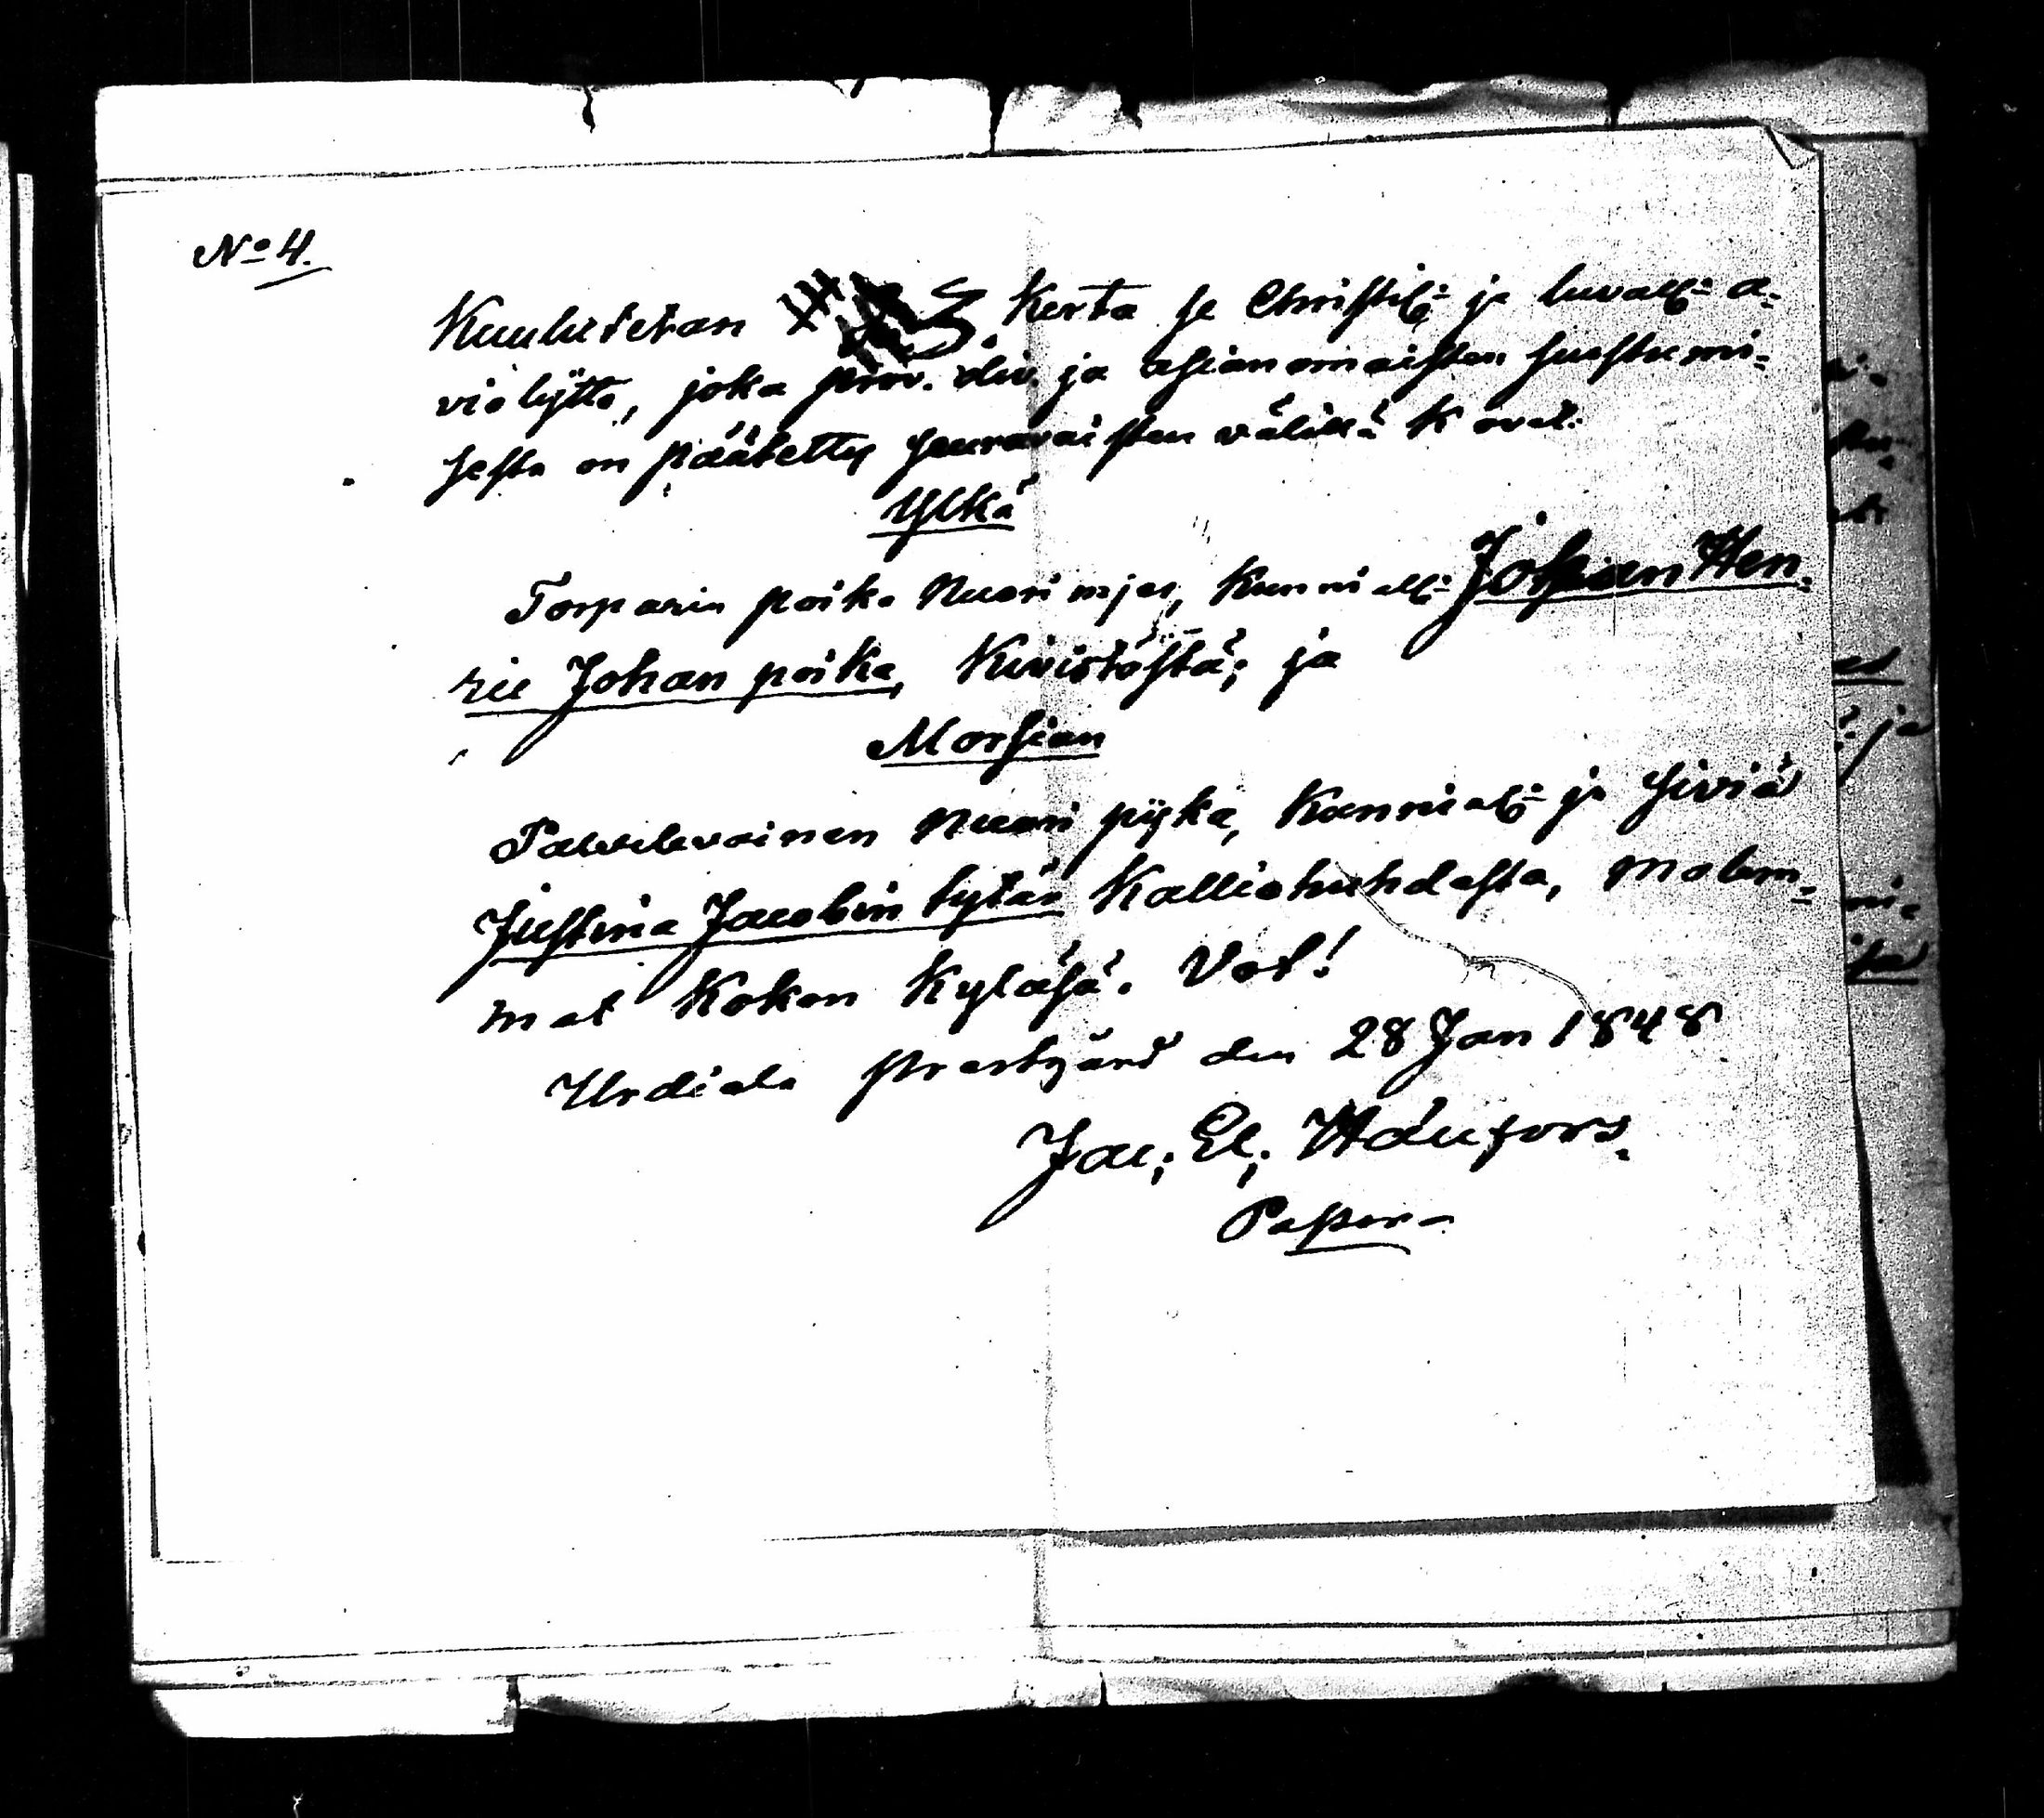 No 4.
Kuulutetan 3. Kerta se Christil:= ja luvall:= a=
violijtto, joka prov. div. ja asianomaisten suostumi=
sesta on päätetty seuravaisten välillä K ovat:
Ylkä
Torparin poika Nuori mjes, Kunniall:= Johan Hen=
ric Johan poika, Kivistöstä; ja
Morsian
Palvelevainen Nuori pijka, Kunniall:= ja siviä
Justina Jacobin tytär Kalliohuhdasta, molem=
mat Kokon Kyläsä. Vot!
Urdiala Prestgård den 28 Jan 1848
Jac; El;
Pastor
ja